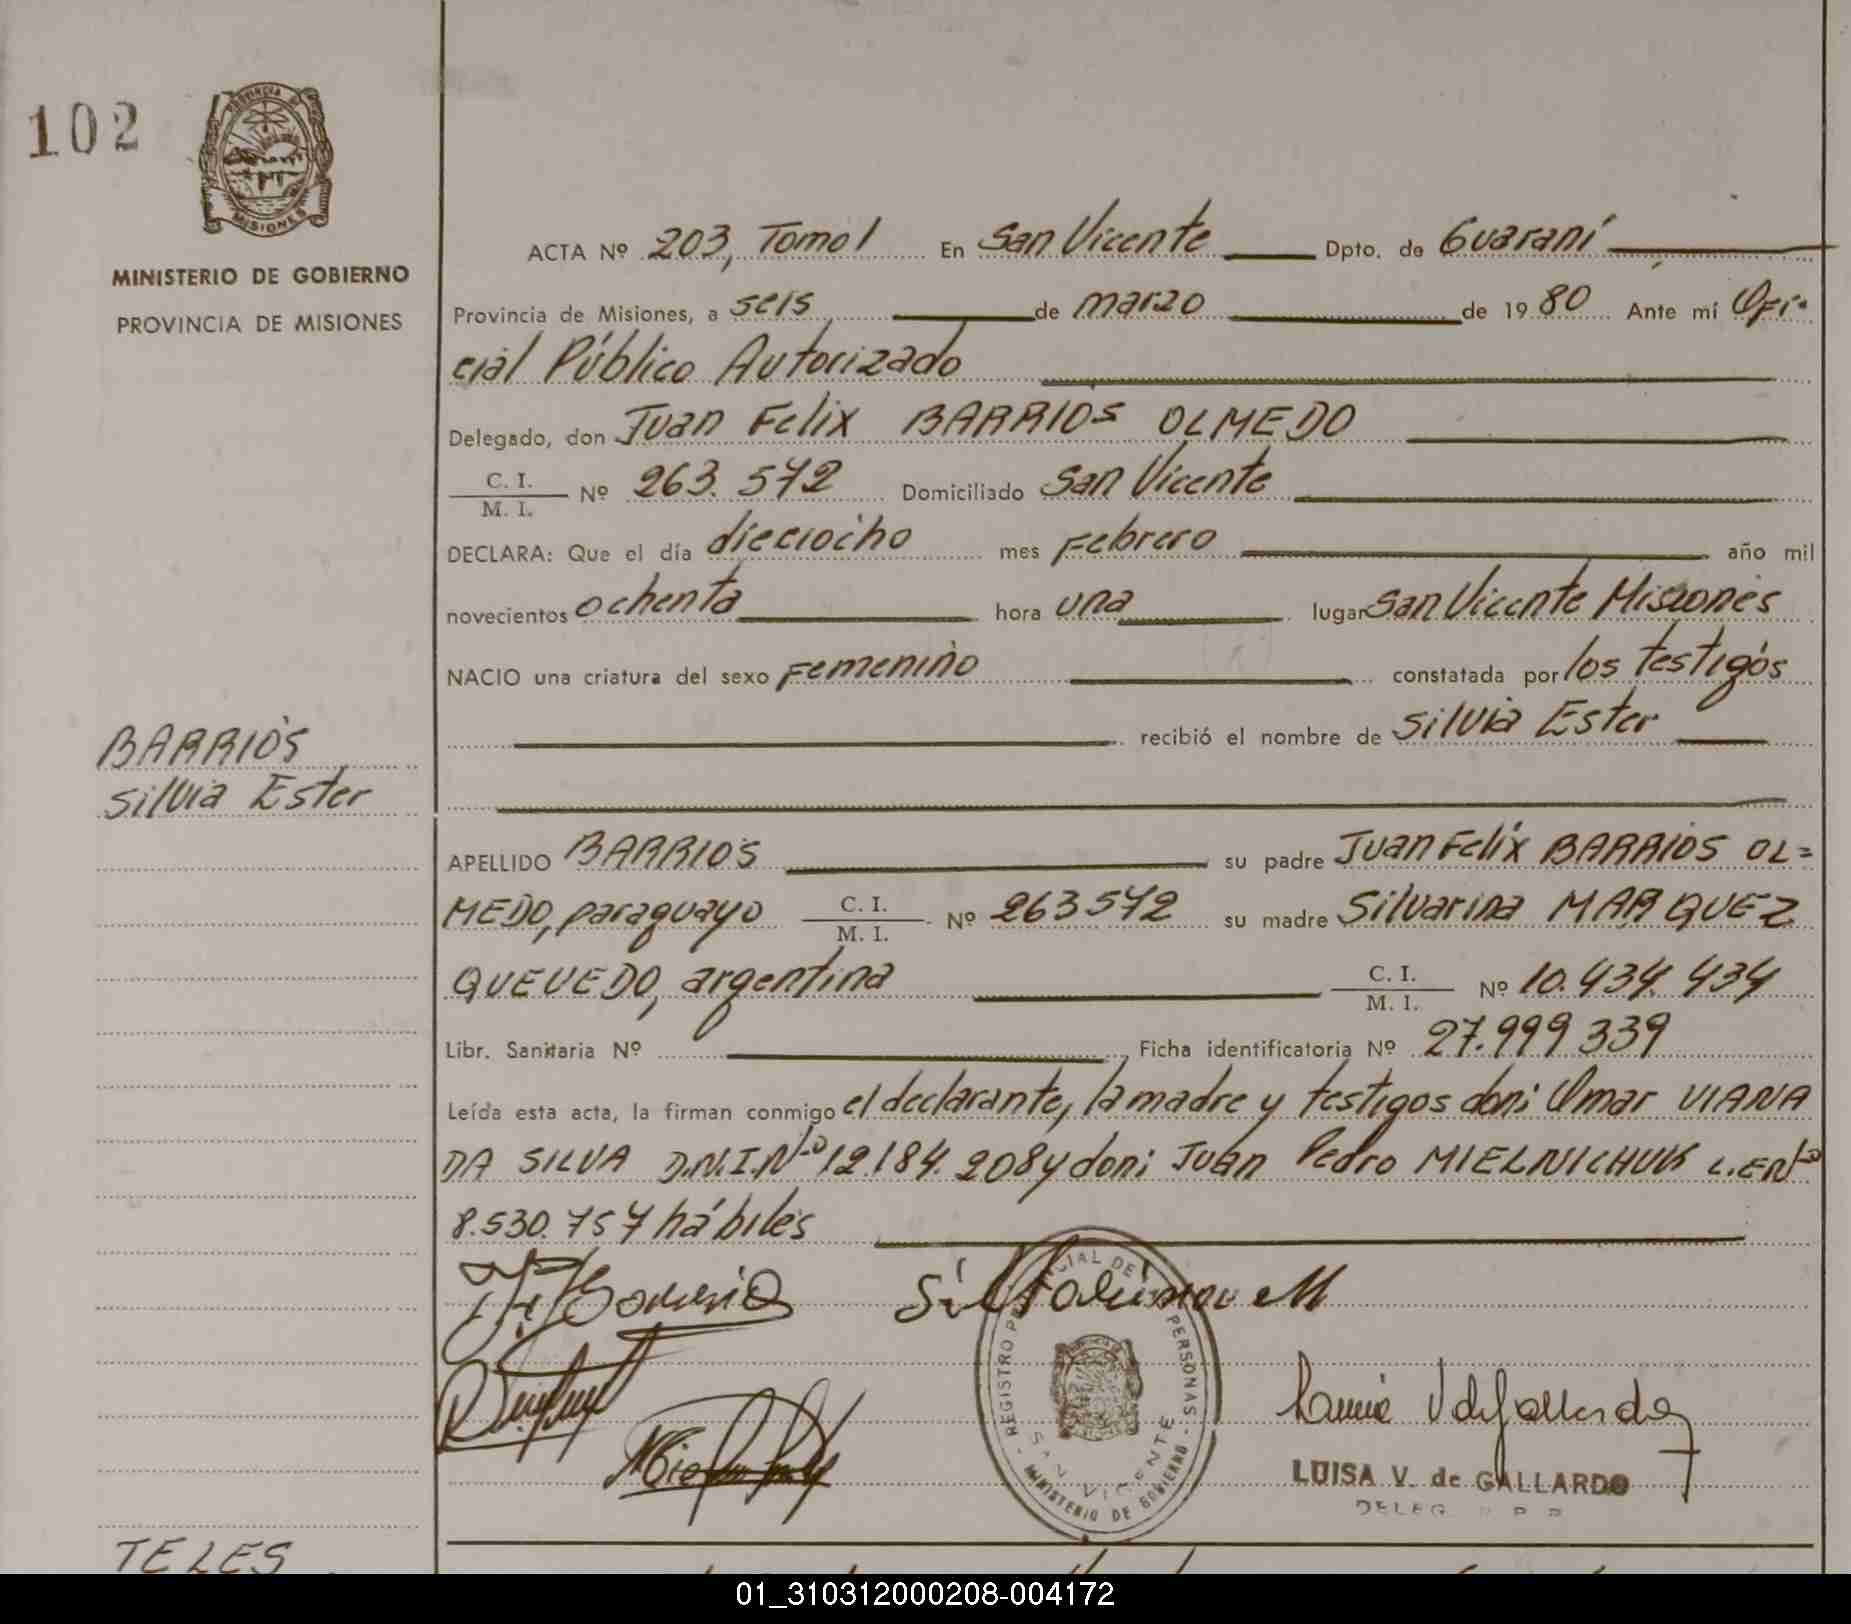 102
PROVINCIA DE
MISIONES
MINISTERIO DE GOBIERNO
PROVINCIA DE MISIONES
ACTA Nº 203, Tomo I En San Vicente Dpto. de Guaraní
Provincia de Misiones, a seis de marzo de 1980 Ante mí Ofi-
cial Público Autorizado
Delegado, don Juan Felix BARRIOS OLMEDO
C. I.
M. I. Nº 263.572 Domiciliado San Vicente
DECLARA: Que el día dieciocho mes Febrero año mil
novecientos ochenta hora una lugar San Vicente Misiones
NACIO una criatura del sexo Femenino constatada por los testigos
recibió el nombre de Silvia Ester
BARRIOS
Silvia Ester
APELLIDO BARRIOS su padre Juan Felix BARRIOS OL=
MEDO, paraguayo C. I. M. I. Nº 263572 su madre Silvarina MARQUEZ
QUEVEDO, argentina C. I. M. I. Nº 10.434.434
Libr. Sanitaria Nº Ficha identificatoria Nº 27.999339
Leída esta acta, la firman conmigo el declarante, la madre y testigos don: Omar VIANA
DA SILVA D.N.I.Nº 12.184.208 y don: Juan Pedro MIELNICHUK L.E Nº
8.530.757 hábiles
Silvarina M
REGISTRO PROVINCIAL DE PERSONAS
SAN VICENTE
MINISTERIO DE GOBIERNO
LUISA V. de GALLARDO
DELEG
TELES
01_310312000208-004172